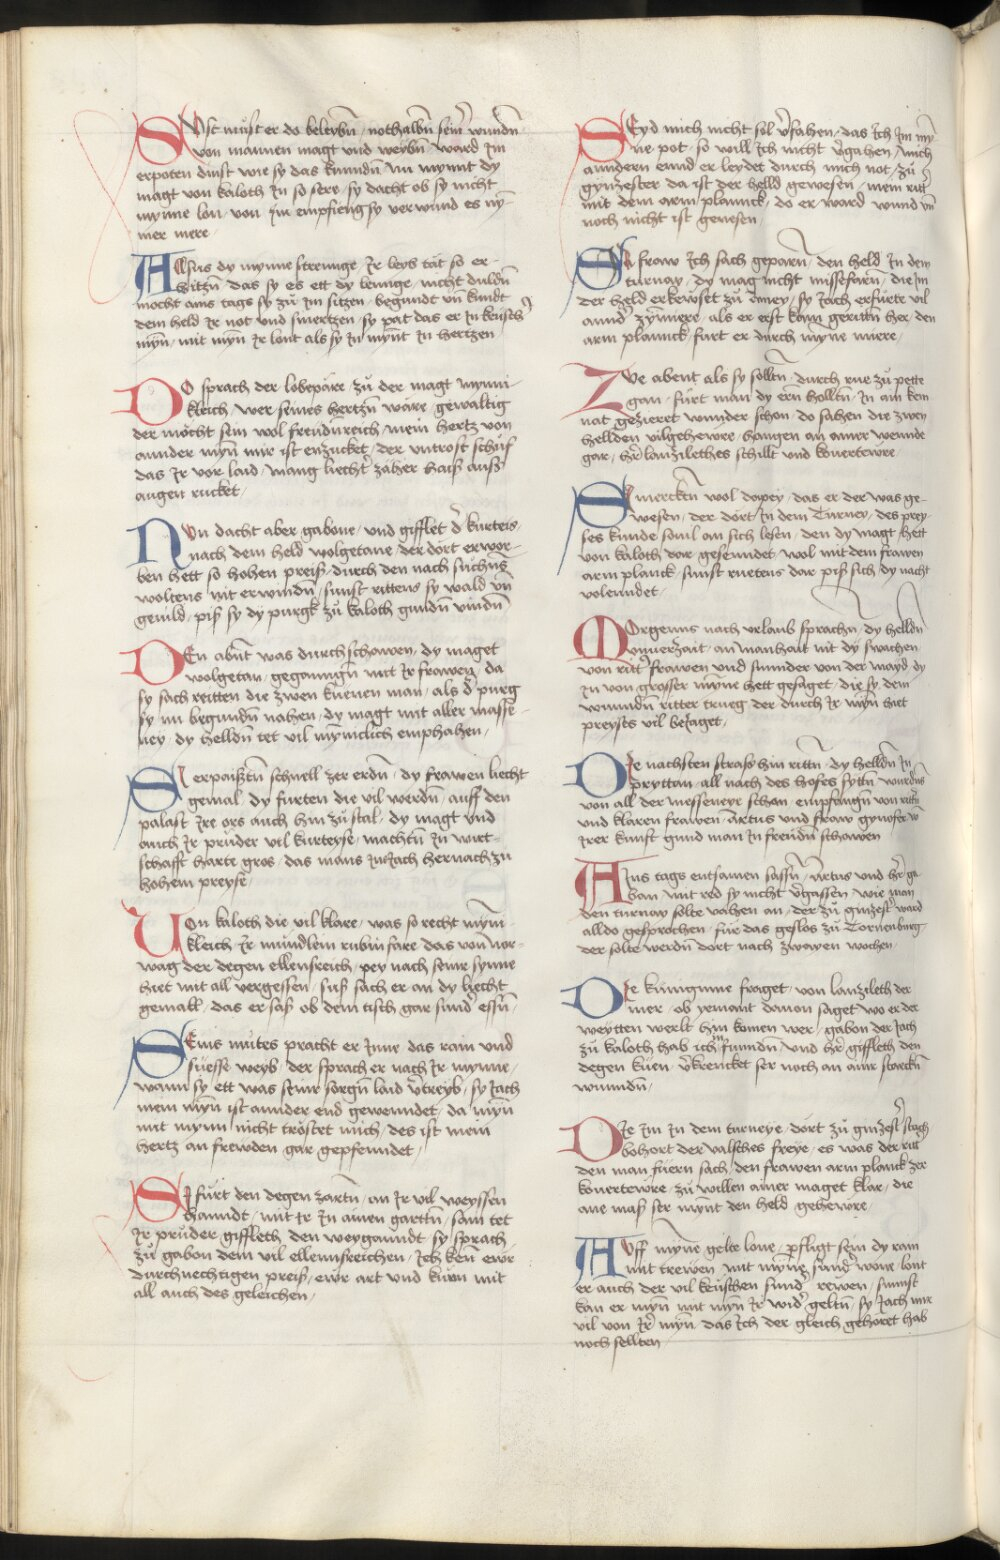 SUst must er do beleybn / nothalbn seinr wundn
von mannen magt vnd weybn / ward Im
erpoten dinst wie sy das kunndn Nu mynnt dy
magt von kaloth In so sere / sy dacht ob sy nicht
mynne lon / von Im empfieng sy verwund es ny-
mer mere
ALsus dy mynne strennge / Ir leyb tät so er-
hitzn das sy es ett dy lennge / nicht duldn
mocht ains tags sy zu Im sitzen / begundt vn kundt
dem held Ir not vnd smertzen / sy pat das er In keuscher
myn / mit myn Ir lont als sy In mynt In hertzen
DO sprach der lobepäre / zu der magt mynni-
kleich / wer seines hertzn wäre / gewaltig
der möcht sein wol freudnreich / mein hertz von
annder myn mir ist enzucket / der vntrost schuf
das Ir vor laid / mang liechter zäher haiss auss
augen rucket /
NUn dacht aber gabone / vnd gifflet der kurteis /
nach dem held wolgetane / der dort erwor-
ben hett so hohen preiss / durch den nach suchns
woltens nit erwindn / sunst rittens sy wald vn
gevild / piss sy dy purgk zu kaloth gundn vindn
DEn abnt was durch schawen / dy maget
wolgetan / gegangen mit Ir frawen / da
sy sach reitten die zwen kuenen man / als der purg
sy nu begundn nahen / dy magt mit aller masse-
ney / dy helldn tet vil mynnclich emphahen /
SI erpaisstn schnell zer erdn / dy frawen liecht
gemal / dy furten die vil werdn / auff den
palast Ire ors auch hin zu stal / dy magt vnd
auch Ir pruder vil kurteyse / machtn In wirt-
schafft harte gros / das mans In Iach hernach zu
hohem preyse /
VOn kaloth die vil klare / was so recht mynn-
kleich / Ir mündlein rubin fare das von nor-
wag der degen ellensreich / pey nach seine synne
hiet mit all vergessen / sust sach er an dy liecht
gemall / das er sass ob dem tisch gar sunder essn /
SEins mütes pracht er Inne / das rain vnd
süesse weyb / der sprach er nach Ir mynne /
wann sy ett was seinr sorgn laid vertreyb / sy Iach
mein myn ist annder end gewenndet / da myn
mit mynn nicht tröstet mich / des ist mein
hertz an frewden gar gepfenndet /
SI fürt den degen zartn / an Ir vil weyssen
hanndt / mit Ir In ainen gartn / sam tet
Ir prüder giffleth / den weygannt sy sprach
zu gabon dem vil ellennsreichen / Ich kenn ewr
durchnechtigen preiss / ewr art vnd kunn mit
all auch des geleichen /
SEyd mich nicht sol versahen / das Ich Im myn-
ne pot / so will Ich nicht vergahen / mich
anndern ennd er leydet durch mich not / zu
gynzester da ist der helld gewesen / mein ritter
mit dem arm plannck / do er ward wund vn
noch nicht ist genesen /
SIa fraw Ich sach geparn / den held In dem
turnay / dy mag nicht missefarn / die Im
der held erkewset zu ameÿ / sy Iach er fürte vil
annder zymiere / als er erst kam gerittn her / den
arm plannck furt er durch myne miere /
ZWe abent als sy solltn / durch rue zu pette
gan / fürt man dy ern holltn / In ain kem
nat gezieret wunder schon / do sahen die zwen
hellden vilgehewre / hangen an ainer wennde
gar / her lanzilethes schillt vnd kouertewre
SI merckten wol dapey / das er der was ge-
wesen / der dort In dem Turney / des prey-
ses kunde sonil an sich lesen / den dy magt hett
von kaloth dar gesenndet / wol mit dem frawen
arm planck / sunst ruetens dar piss sich / dy nacht
volenndet /
MOrgenns nach vrlaub sprachn / dy helldn
vnuerzait / an manhait nit dy swachen
von ritter frawen vnd sunnder von der mayd / dy
In von grosser myne hett gesaget / die sy dem
wunndn ritter trueg der durch Ir myn hiet
preysts vil beiaget /
DIe nachsten strass hin rittn / dy helldn In
pryttan / all nach des hofes syttn wurdns
von all der messeneye schon / empfangn von rittern
vnd klaren frawen / Artus vnd fraw gynofer von
Irer kunst gund man In freudn schawen
AIns tags entsamen sassn / Artus vnd her ga-
ban / mit red sy nicht vergassen / wie man
den turnay solte vahen an / der zu ginzester ward
alldo gesprochen / für das geslos zu Tornenburg /
der solte werdn dort nach zwayen wochen /
DIe künniginne fraget / von lanzileth der
mer / ob yemant dauon saget wo er der
weytten werlt hin komen wer / gabon der Iach
zu kaloth hab ich In funndn / vnd her giffleth den
degen kuen / verkrencket ser noch an ainr starckn
wunndn /
DIe Im In dem turneye / dort zu ginzester stach
bohort der valsches freye / es was der ritter
den man fuern sach / den frawen arm planck zer
kouertewre / zu willen ainer maget klar / die
ane mass ser mynt den held gehewre /
AUff myne gelte lone / pfligt sein dy rain
mit trewen / mit myne sunder wone / lont
er auch der vil keuschen sunder rewen / sunnst
kan er myn mit myn Ir wider geltn / sy Iach mir
vil von Ir myn / das Ich der gleich gehoret hab
noch sellten